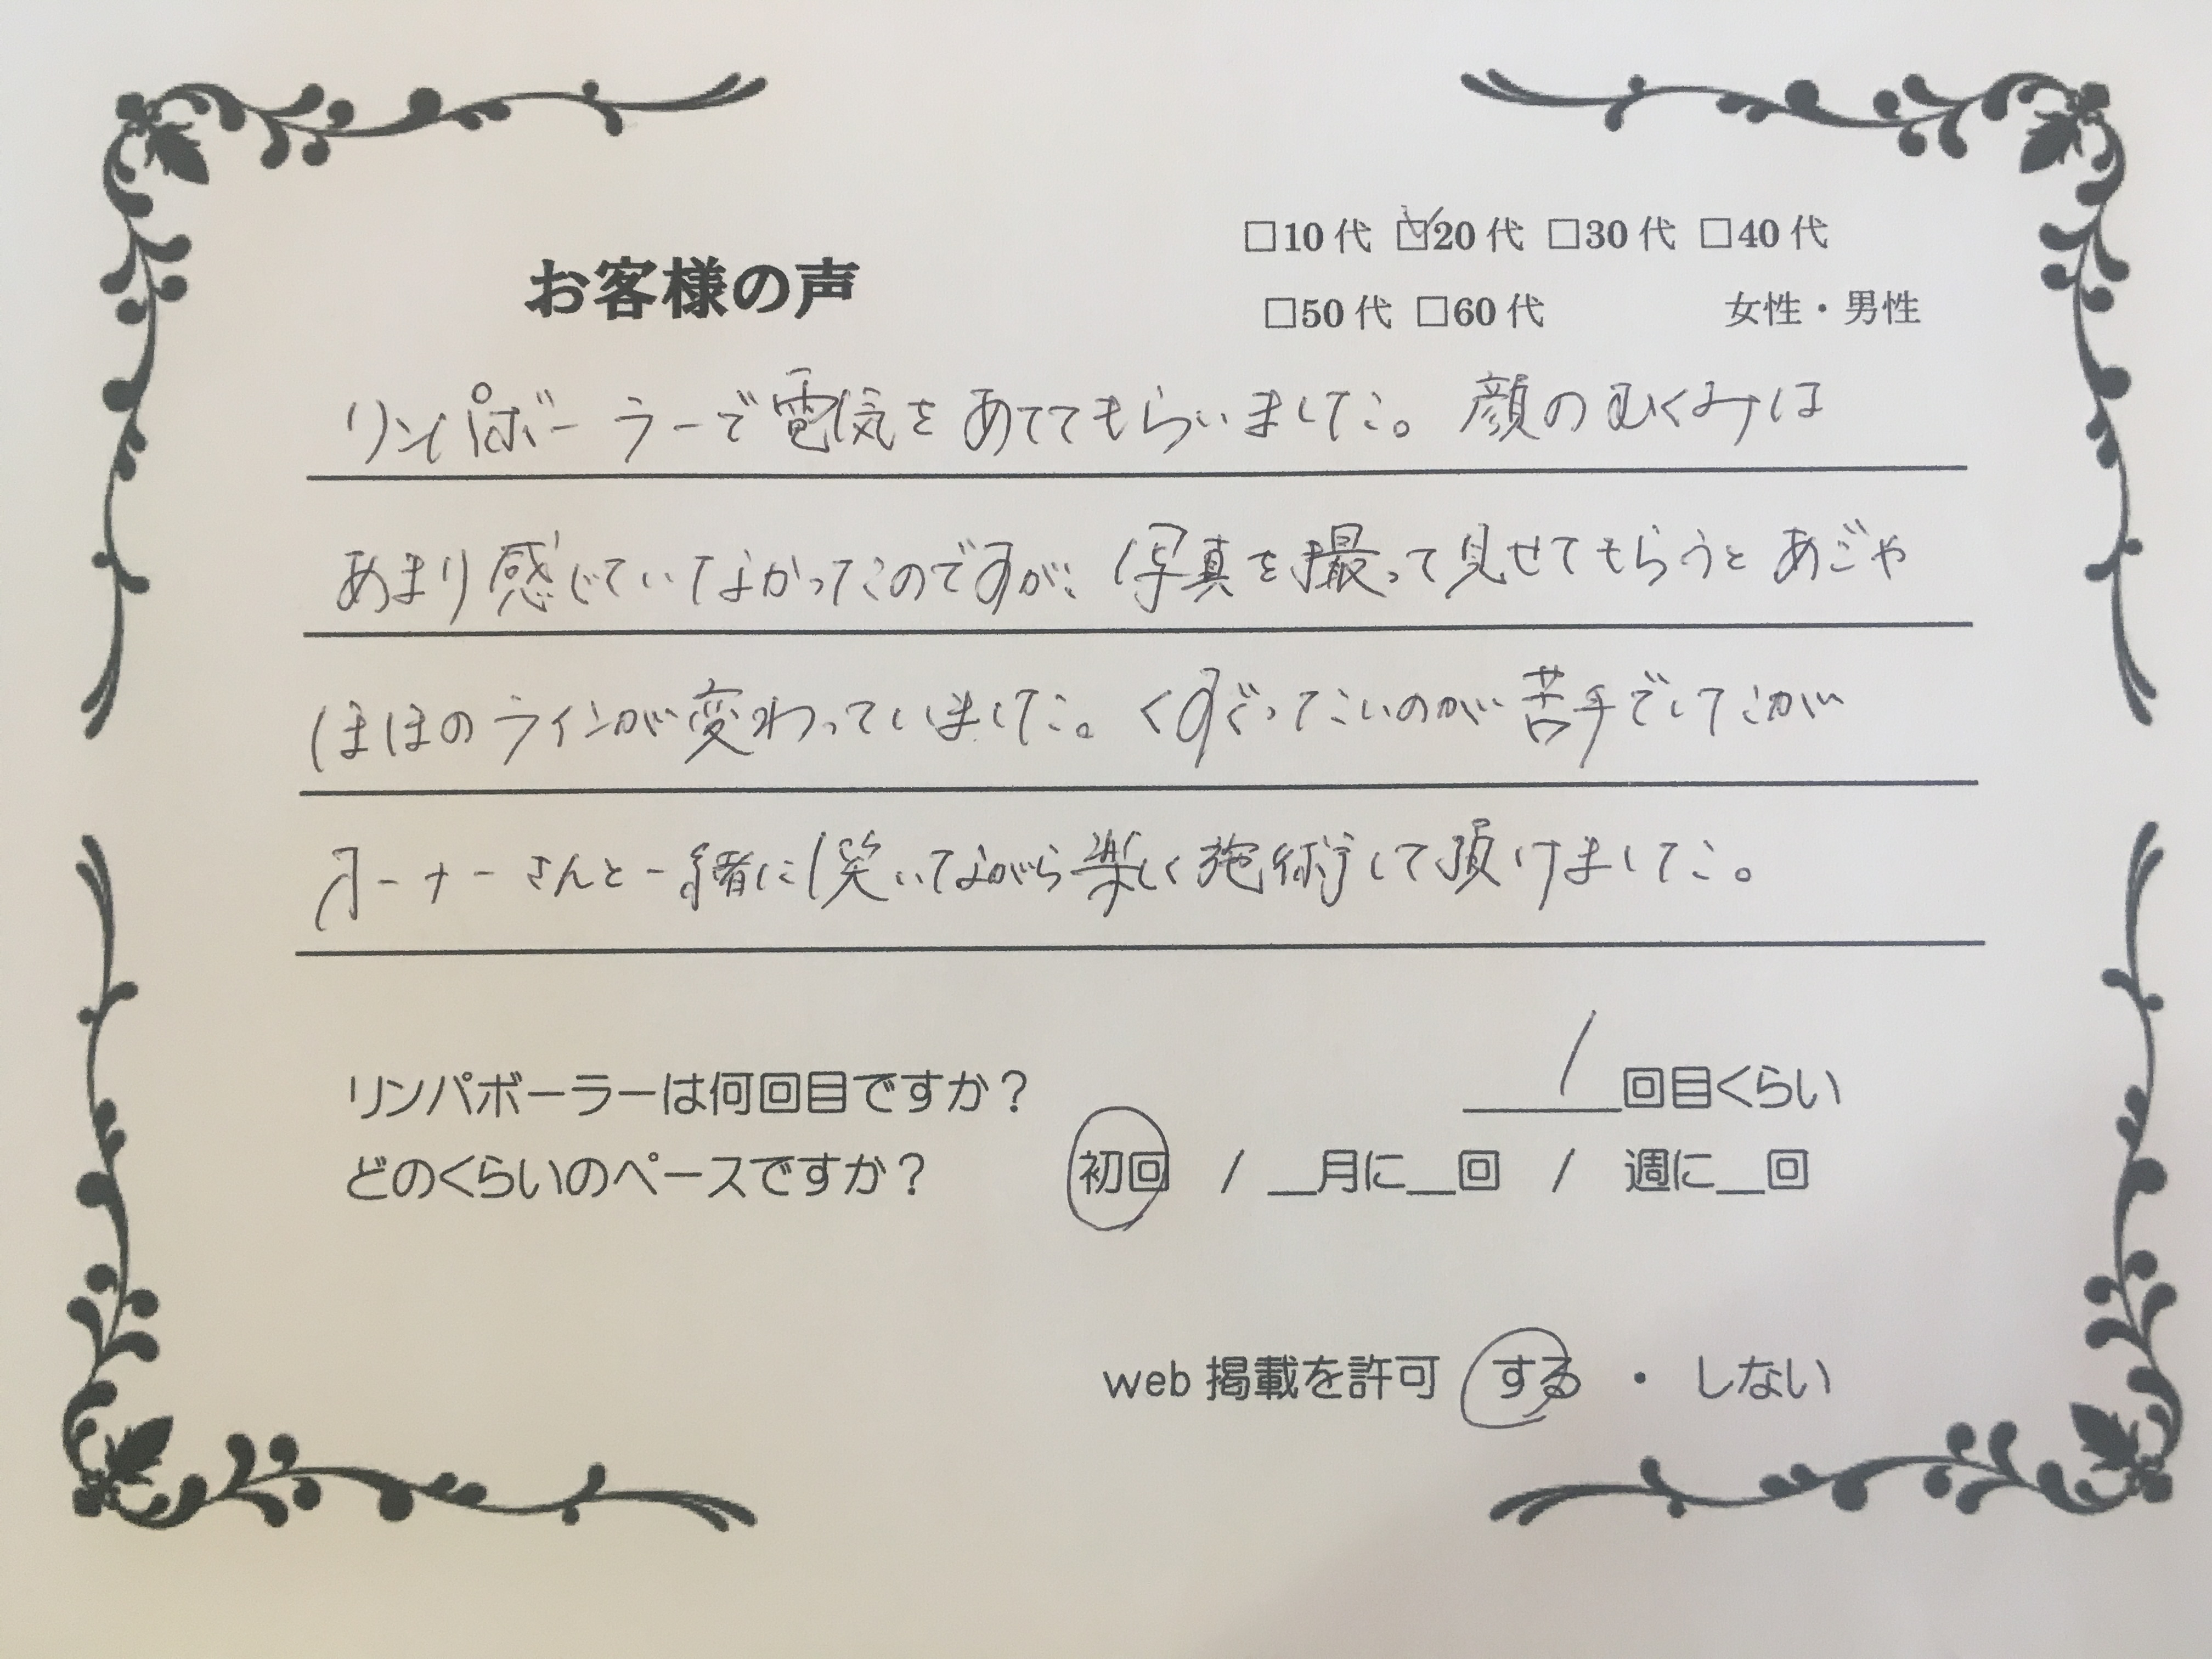 □10代 ☑20代 □30代 □40代
お客様の声
□50代 □60代 女性・男性
リンパボーラーで電気をあててもらいました。顔のむくみは
あまり感じていなかったのですが、写真を撮って見せてもらうとあごや
ほほのラインが変わっていました。くすぐったいのが苦手でしたが
オーナーさんと一緒に笑いながら楽しく施術して頂けました。
リンパボーラーは何回目ですか？ 1回目くらい
どのくらいのペースですか？ 初回 / __月に__回 / 週に__回
web掲載を許可 する ・ しない